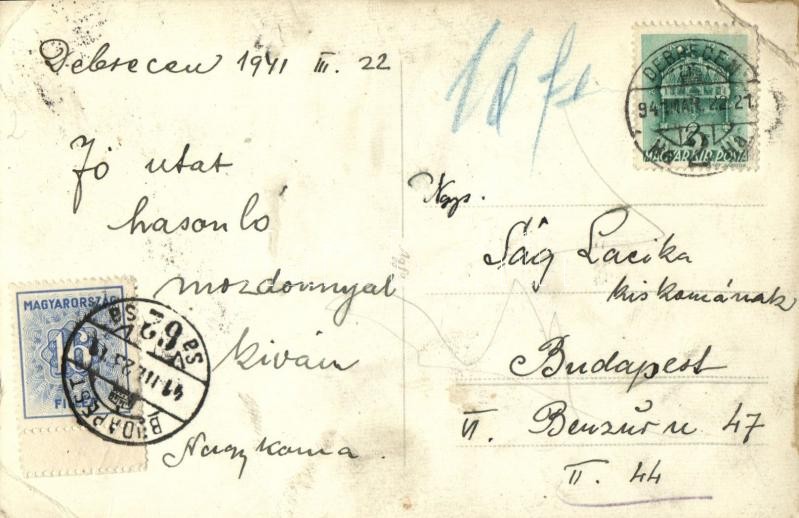 Debrecen 1941 III. 22
Jó utat
hasonló
mozdonnyal
kiván
Nagykoma.
16 f
DEBRECEN
941 MAR. 22. 21
2
MAGYAR KIR. POSTA
Nags.
Ság Lacika
kiskomának
Budapest
VI. Benzúr u 47
II. 44
MAGYARORSZÁG
16
BUDAPEST
62
41 III 23
Agfa